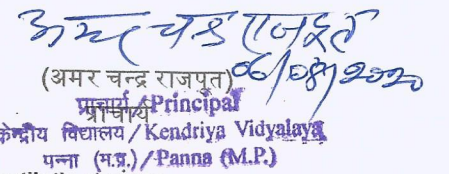 अमर चन्द्र राजपूत
06/08/2020
(अमर चन्द्र राजपूत)
प्राचार्य/Principal
प्राचार्य
केन्द्रीय विद्यालय/Kendriya Vidyalaya
पन्ना (म.प्र.)/Panna (M.P.)